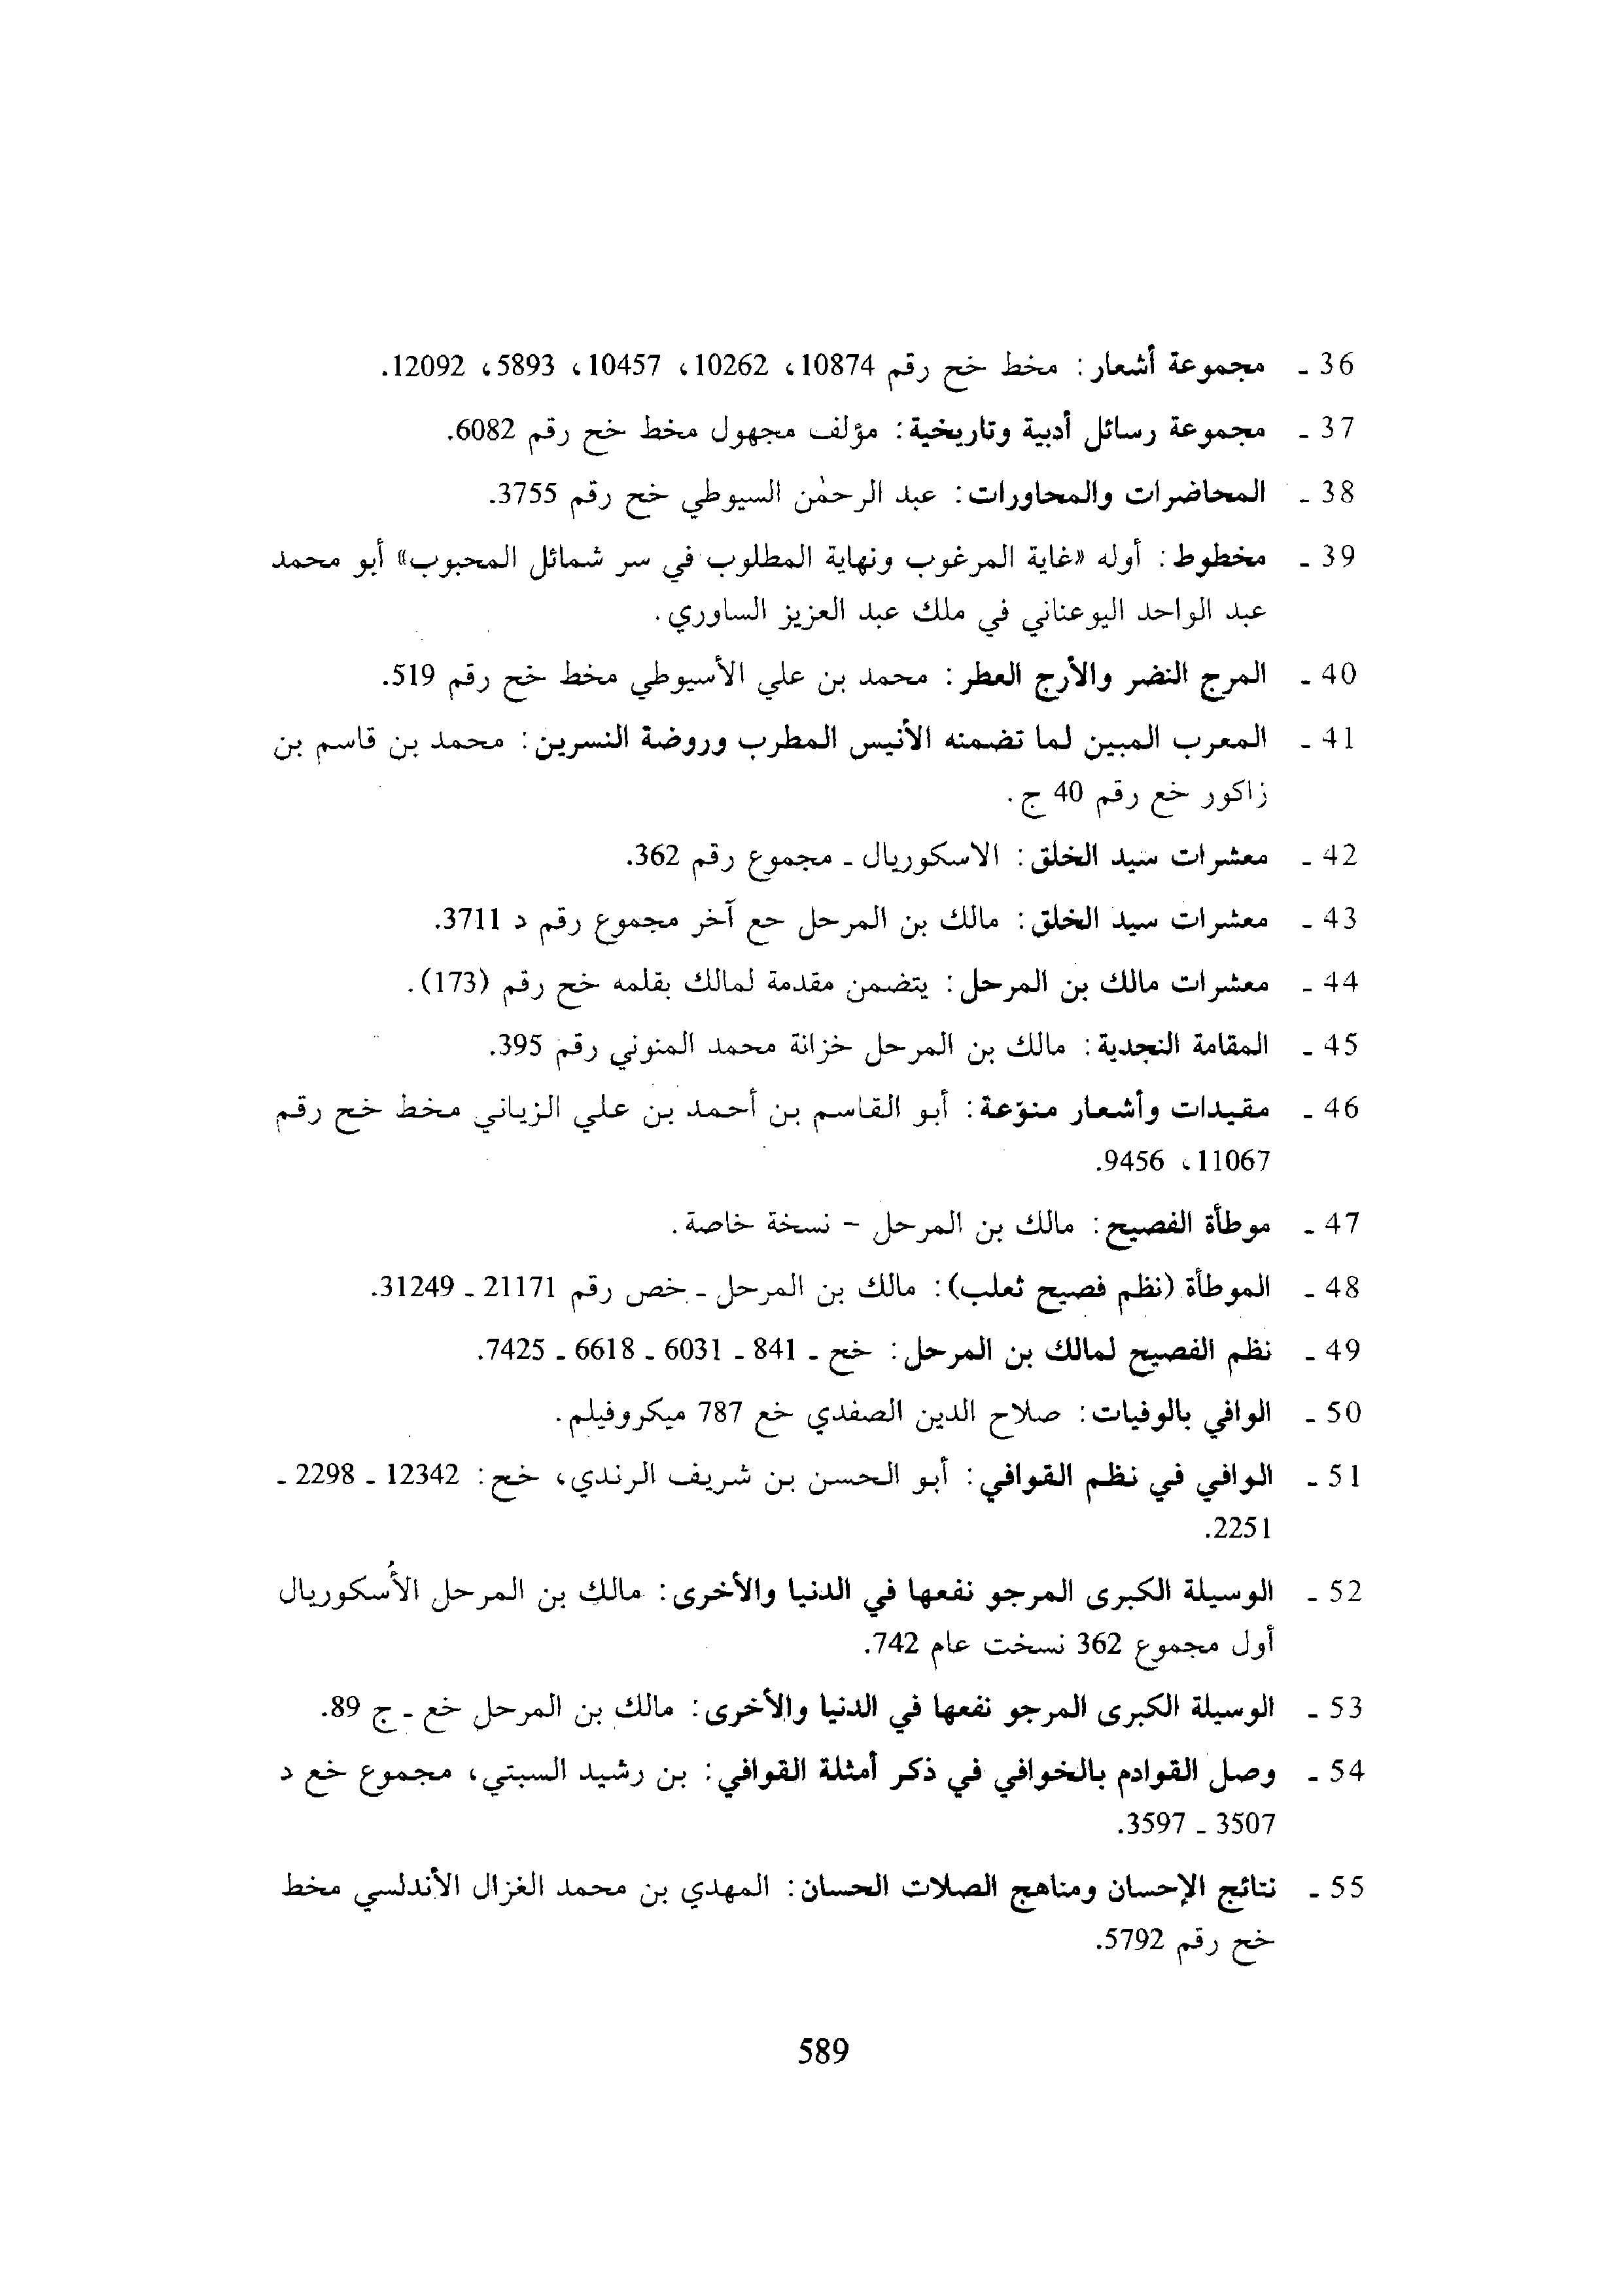 36 ـ مجموعة أشعار: مخط خح رقم 10874، 10262، 10457، 5893، 12092.
37 ـ مجموعة رسائل أدبية وتاريخية: مؤلف مجهول مخط خح رقم 6082.
38 ـ المحاضرات والمحاورات: عبد الرحمٰن السيوطي خح رقم 3755.
39 ـ مخطوط: أوله «غاية المرغوب ونهاية المطلوب في سر شمائل المحبوب» أبو محمد
عبد الواحد البوعناني في ملك عبد العزيز الساوري.
40 ـ المرج النضر والأرج العطر: محمد بن علي الأسيوطي مخط خح رقم 519.
41 ـ المعرب المبين لما تضمنه الأنيس المطرب وروضة النسرين: محمد بن قاسم بن
زاكور خع رقم 40 ج.
42 ـ معشرات سيد الخلق: الاسكوريال ـ مجموع رقم 362.
43 ـ معشرات سيد الخلق: مالك بن المرحل حع آخر مجموع رقم د 3711.
44 ـ معشرات مالك بن المرحل: يتضمن مقدمة لمالك بقلمه خح رقم (173).
45 ـ المقامة النجدية: مالك بن المرحل خزانة محمد المنوني رقم 395.
46 ـ مقيدات وأشعار منوّعة: أبو القاسم بن أحمد بن علي الزياني مخط خح رقم
11067، 9456.
47 ـ موطأة الفصيح: مالك بن المرحل - نسخة خاصة.
48 ـ الموطأة (نظم فصيح ثعلب): مالك بن المرحل ـ خص رقم 21171 ـ 31249.
49 ـ نظم الفصيح لمالك بن المرحل: خح ـ 841 ـ 6031 ـ 6618 ـ 7425.
50 ـ الوافي بالوفيات: صلاح الدين الصفدي خع 787 ميكروفيلم.
51 ـ الوافي في نظم القوافي: أبو الحسن بن شريف الرندي، خح: 12342 ـ 2298 ـ
2251.
52 ـ الوسيلة الكبرى المرجو نفعها في الدنيا والأخرى: مالك بن المرحل الأسكوريال
أول مجموع 362 نسخت عام 742.
53 ـ الوسيلة الكبرى المرجو نفعها في الدنيا والأخرى: مالك بن المرحل خع ـ ج 89.
54 ـ وصل القوادم بالخوافي في ذكر أمثلة القوافي: بن رشيد السبتي، مجموع خع د
3507 ـ 3597.
55 ـ نتائج الإحسان ومناهج الصلات الحسان: المهدي بن محمد الغزال الأندلسي مخط
خح رقم 5792.
589